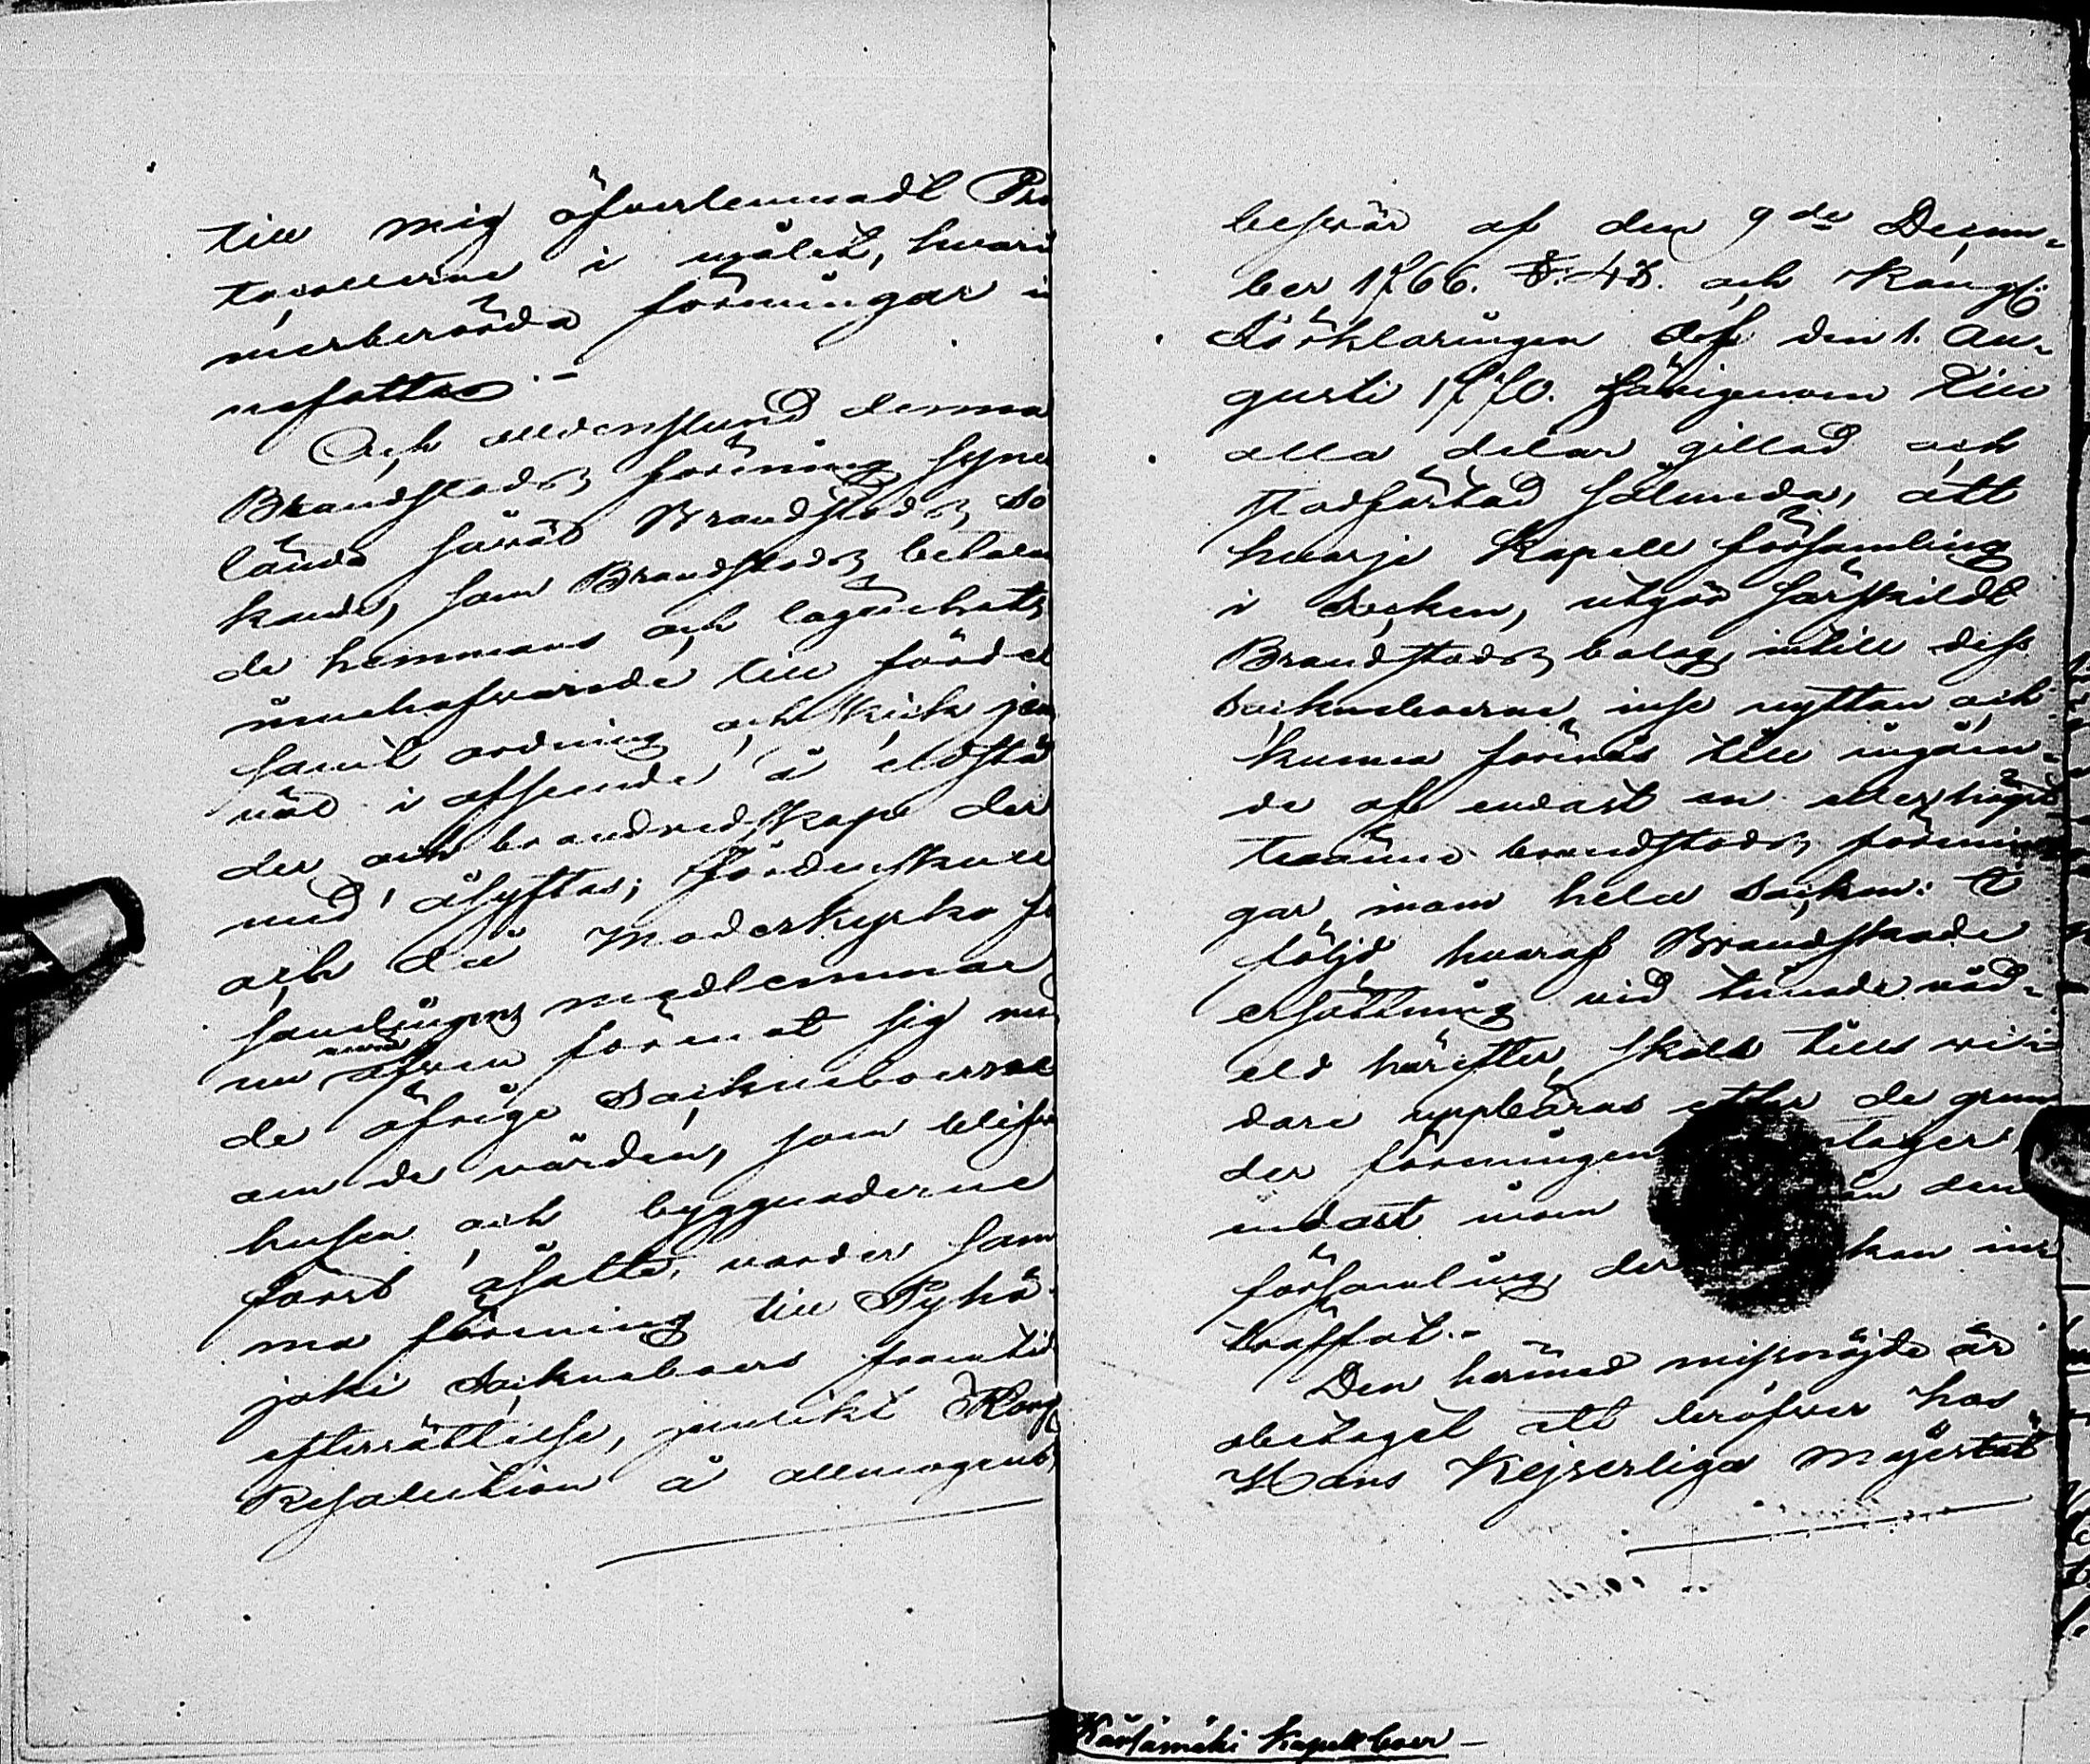 till mig öfverlemnadt Pro
tocollerne i målet, hvari
merberörda föreningar in
nefattas.-
Och alldenstund denna
Brandstods förening synes
lända såväl Brandstods sö
kande, som Brandstods betalan
de hemmans och lägenhets
innehafvande till fördel
samt ordning och skick jem
väl i afseende å eldstä
der och brandredskaps der
med åsyftas; fördenskull
och då Moderkyrko för
samlingens medlemmar
nu äfven förenat sig med
de öfrige Sockneboerne
om de värden, som blifva
husen och byggnaderne
först åsatte, varder sam
ma förening till Pyhä-
joki Socknebors framtid
efterrättelse, jemlikt Kongl
Resolution å allmogens
besvär af den 9de Decem-
ber 1766. §. 48. och Kongl.
Förklaringen af den 1. Au-
gusti 1770. härigenom till
alla delar gillad och
stadfästad sålunda, att
hvarje Kapell församling
i Socken, utgör särskildt
Brandstods bolag, intill dess
Socknoboerne inse nyttan och
kunna förenas till ingåen-
de af endast en eller högst
tvänne brandstods förenin
gar, inom hela Socken: I
följd hvaraf Brandskade
ersättning vid timade våd-
eld härefter skall tills vi-
dare uppbäras efter de grun
der föreningen
endast inom den
församling, der kan in-
träffat.-
Den härmed missnöjde är
obetaget att deröfver hos
Hans Kejserliga Majestät
Kärsämäki Kapellboer -